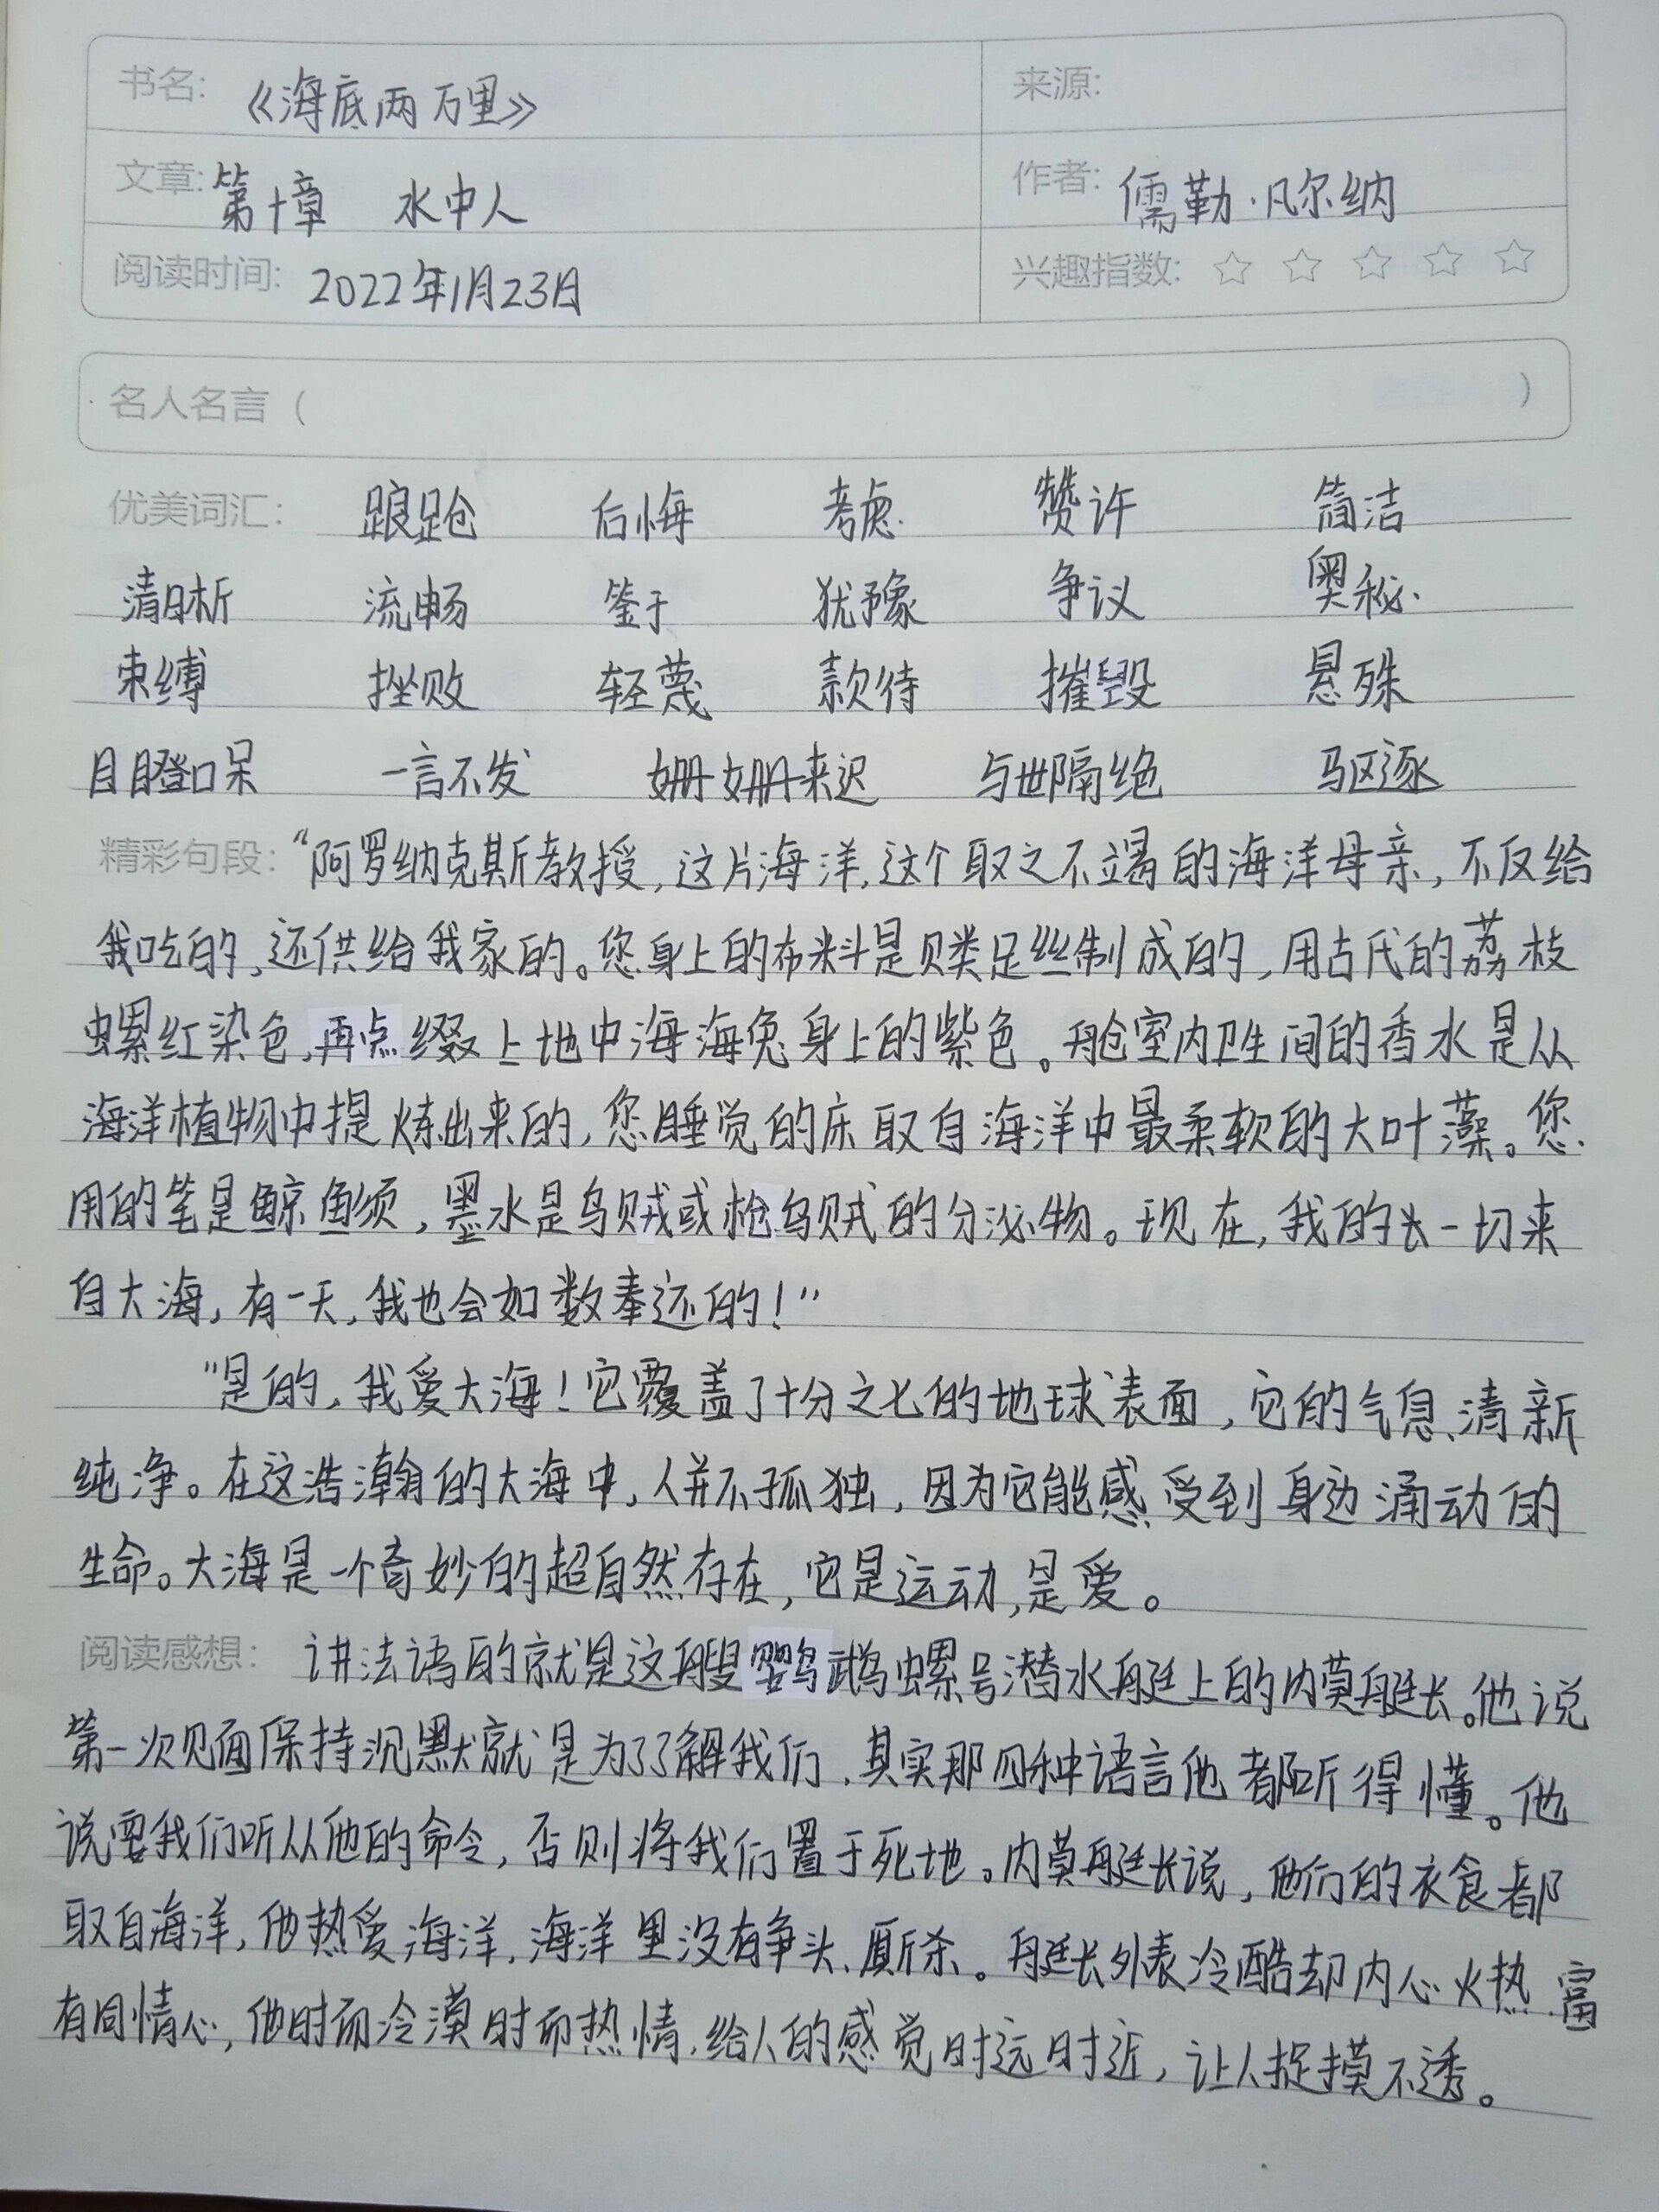 书名: 《海底两万里》 来源:
文章: 第十章 水中人 作者: 儒勒·凡尔纳
阅读时间: 2022年1月23日 兴趣指数: ☆ ☆ ☆ ☆ ☆
名人名言 ( )
优美词汇: 踉跄 后悔 考虑 赞许 简洁
清晰 流畅 鉴于 犹豫 争议 奥秘
束缚 挫败 轻蔑 款待 摧毁 悬殊
目瞪口呆 一言不发 姗姗来迟 与世隔绝 驱逐
精彩句段: “阿罗纳克斯教授,这片海洋,这个取之不竭的海洋母亲,不仅给
我吃的,还供给我家的。您身上的布料是贝类足丝制成的,用古代的荔枝
螺红染色,再点缀上地中海海兔身上的紫色。舱室内卫生间的香水是从
海洋植物中提炼出来的,您睡觉的床取自海洋中最柔软的大叶藻。您
用的笔是鲸鱼须,墨水是乌贼或枪乌贼的分泌物。现在,我的一切来
自大海,有一天,我也会如数奉还的!”
“是的,我爱大海!它覆盖了十分之七的地球表面,它的气息清新
纯净。在这浩瀚的大海中,人并不孤独,因为它能感受到身边涌动的
生命。大海是一个奇妙的超自然存在,它是运动,是爱。
阅读感想: 讲法语的就是这艘鹦鹉螺号潜水艇上的内莫艇长。他说
第一次见面保持沉默就是为了了解我们,其实那四种语言他都听得懂。他
说要我们听从他的命令,否则将我们置于死地。内莫艇长说,他们的衣食都
取自海洋,他热爱海洋,海洋里没有争头、厮杀。艇长外表冷酷却内心火热、富
有同情心,他时而冷漠时而热情,给人的感觉时远时近,让人捉摸不透。